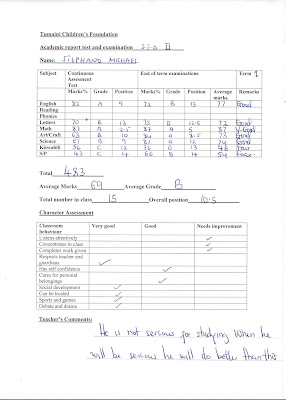 Tumaini Children's Foundation
Academic report test and examination STD II
Name: MICHAEL
Subject Continuous Assessment Test End of term examinations Term 1
Marks% Grade Position Marks% Grade Position Average marks Remarks
English 82 A 9 72 B 13 77 Good
Reading
Phonics
Letters 70 B 13 75 B 12.5 72 Good
Math 87 A 87 A 5 87 V-Good
Art/Craft 63 B 10 84 A 8.5 73 Good
Science 67 B 9 81 A 12 74 Good
Kiswahili 56 C 12 36 D 13 46
S/P 43 C 14 66 B 14 54
Total 483
Average Marks 69 Average Grade B
Total number in class 15 Overall position 10.5
Character Assessment
Classroom behaviour Very good Good Needs improvement
Listens attentively ✓
Concentrates in class ✓
Completes work given ✓
Respects teacher and guardians ✓
Has self confidence ✓
Cares for personal belongings ✓
Social development ✓
Can be trusted ✓
Sports and games ✓
Debate and drama ✓
Teacher's Comments:
He is not serious for studying. When he
will be serious he will do better than this